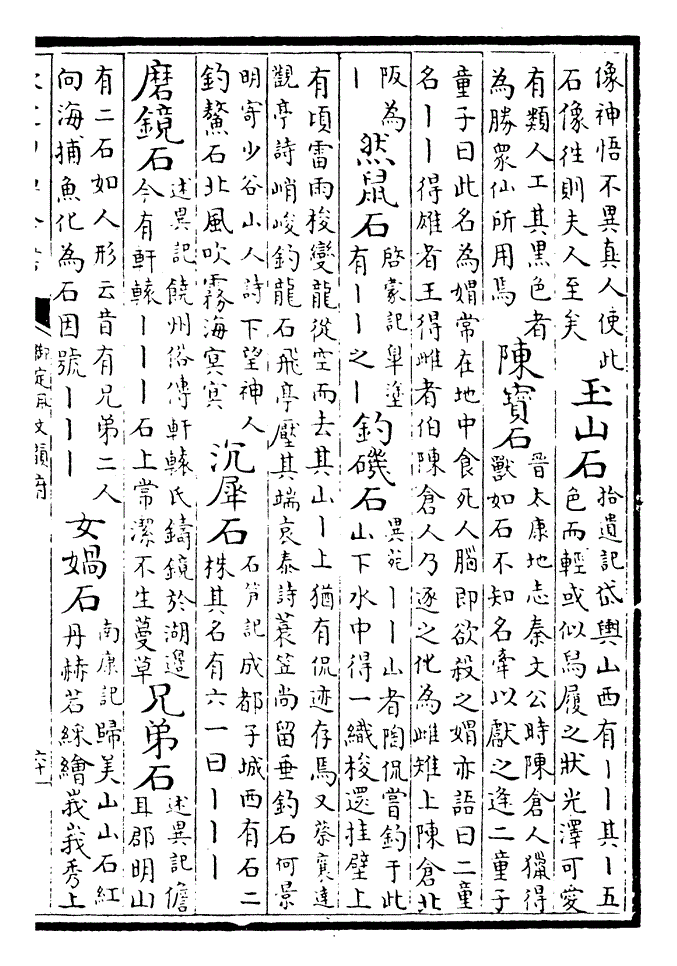 像神悟不異真人使此
石像徃則夫人至矣
玉山石
拾遺記岱輿山西有丨丨其丨五
色而輕或似舄履之狀光澤可愛
有類人工其黒色者
為勝衆仙所用焉
陳寶石
晉太康地志秦文公時陳倉人獵得
獸如石不知名牽以獻之逢二童子
童子曰此名為媦常在地中食死人腦即欲殺之媦亦語曰二童
名丨丨得雄者王得雌者伯陳倉人乃逐之化為雌雉上陳倉北
阪為
丨
然鼠石
啓蒙記臯塗
有丨丨之丨
釣磯石
異苑丨丨山者陶侃嘗釣于此
山下水中得一織梭還挂壁上
有頃雷雨梭變龍從空而去其山丨上猶有侃迹存焉又蔡襄達
觀亭詩峭峻釣龍石飛亭壓其端袁泰詩蓑笠尚留垂釣石何景
明寄少谷山人詩下望神人
釣鰲石北風吹霧海冥冥
沉犀石
石笋記成都子城西有石二
株其名有六一曰丨丨丨
磨鏡石
述異記饒州俗傳軒轅氏鑄鏡於湖邊
今有軒轅丨丨丨石上常潔不生蔓草
兄弟石
述異記儋
耳郡明山
有二石如人形云昔有兄弟二人
向海捕魚化為石因號丨丨丨
女媧石
南康記歸美山山石紅
丹赫若綵繪峩峩秀上
御定佩文韻府